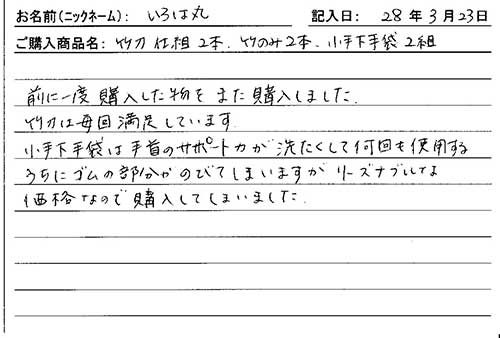 お名前(ニックネーム): いろは丸 記入日: 28年3月23日
ご購入商品名: 竹刀仕組2本、竹のみ2本、小手下手袋2組
前に一度購入した物をまた購入しました。
竹刀は毎回満足しています。
小手下手袋は手首のサポート力が洗たくして何回も使用する
うちにゴムの部分がのびてしまいますが リーズナブルな
価格なので購入してしまいました。